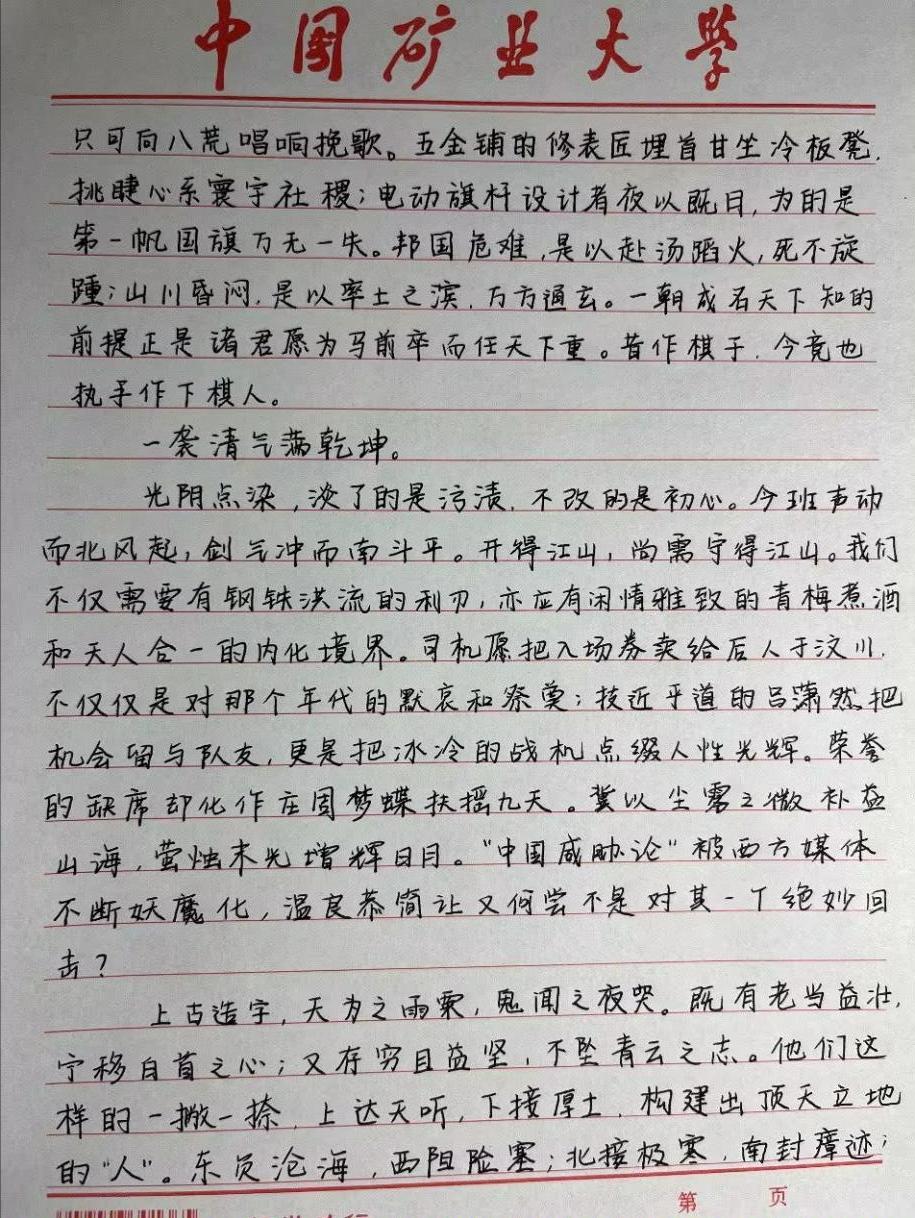 中国矿业大学
只可向八荒唱响挽歌。五金铺的修表匠埋首甘坐冷板凳,
挑睫心系寰宇社稷;电动旗杆设计者夜以既日,为的是
第一帆国旗万无一失。邦国危难,是以赴汤蹈火,死不旋
踵;山川昏闷,是以率土之滨,万方通玄。一朝成名天下知的
前提正是诸君愿为马前卒而任天下重。昔作棋子,今竟也
执手作下棋人。
一袭清气满乾坤。
光阴点染,淡了的是污渍,不改的是初心。今班声动
而北风起,剑气冲而南斗平。开得江山,尚需守得江山。我们
不仅需要有钢铁洪流的利刃,亦应有闲情雅致的青梅煮酒
和天人合一的内化境界。司机愿把入场券卖给后人于汶川,
不仅仅是对那个年代的默哀和祭奠;技近乎道的吕潇然把
机会留与队友,更是把冰冷的战机点缀人性光辉。荣誉
的缺席却化作庄周梦蝶扶摇九天。冀以尘雾之微补益
山海,萤烛末光增辉日月。“中国威胁论”被西方媒体
不断妖魔化,温良恭简让又何尝不是对其一个绝妙回
击?
上古造字,天为之雨粟,鬼闻之夜哭。既有老当益壮,
宁移白首之心;又存穷且益坚,不坠青云之志。他们这
样的一撇一捺,上达天听,下接厚土,构建出顶天立地
的“人”。东负沧海,西阻险塞;北接极寒,南封瘴迹;
第 页